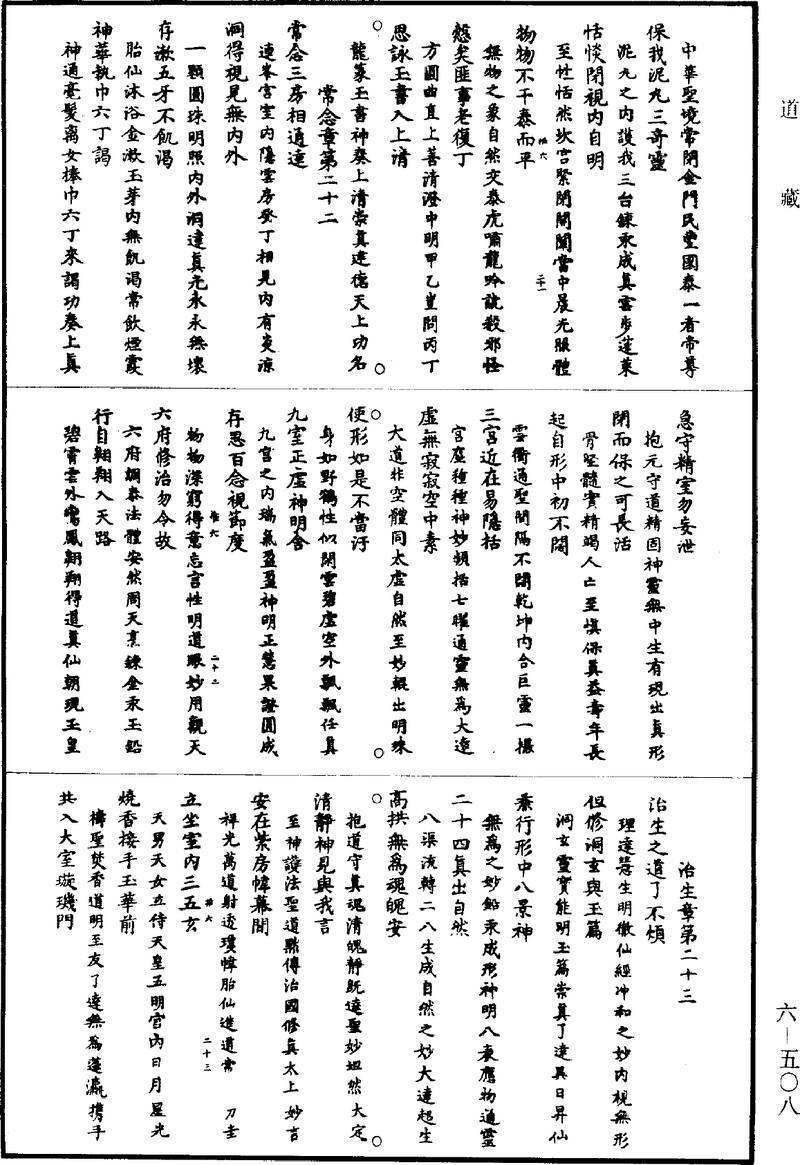 道藏
中華聖境常閉金門民豐國泰一者帝尊
保我泥丸三奇靈
泥丸之內護我三台鍊汞成真雲步蓬萊
恬惔閉視內自明
至性恬然坎宮緊閉閫闑當中晨光眼體
物物不干泰而平
無物之象自然交泰虎嘯龍吟誅殺邪怪
慤矣匪事老復丁
方圓曲直上善清澄中明甲乙豈問丙丁
思詠玉書入上清
龍篆玉書神奏上清崇真達德天上功名
常念章第二十二
常念三房相通達
連峯宮室內隱雲房癸丁相見內有炎涼
洞得視見無內外
一顆圓珠明照內外洞達真元永永無壞
存漱五牙不飢渴
胎仙沐浴金漱玉芽內無飢渴常飲煙霞
神華執巾六丁謁
神通毫髮离女捧巾六丁來謁功奏上真
急守精室勿妄泄
抱元守道精固神靈無中生有現出真形
閉而保之可長活
骨堅髓實精竭人亡至慎保真益壽年長
起自形中初不闊
雲衢通聖間隔不闊乾坤內合巨靈一撮
三宮近在易隱括
宮庭種種神妙頻括七曜通靈無為大達
虛無寂寂空中素
大道非空體同太虛自然至妙輥出明珠
使形如是不當汙
身如野鶴性似閑雲碧虛空外飄飄任真
九室正虛神明舍
九宮之內瑞氣盈盈神明正慧果證圓成
存思百念視節度
物物深窮得意忘言性明道眼妙用觀天
六府修治勿令故
六府調泰法體安然周天烹鍊金汞玉鉛
行自翱翔入天路
碧霄雲外鸞鳳翱翔得道真仙朝現玉皇
治生章第二十三
治生之道了不煩
理達慧生明徹仙經冲和之妙內視無形
但修洞玄與玉篇
洞玄靈寶能明玉篇崇真了達異日昇仙
兼行形中八景神
無為之妙鉛汞成形神明八表應物通靈
二十四真出自然
八渠流轉二八生成自然之妙大達超生
高拱無為魂魄安
抱道守真魂清魄靜旣達聖妙坦然大定
清靜神見與我言
至神護法聖道點傳治國修真太上妙言
安在紫房幃幕間
祥光萬道射透瓊幃胎仙造道常　刀圭
立坐室內三五玄
天男天女立侍天皇五明宮內日月星光
燒香接手玉華前
禱聖焚香道明至友了達無為蓬瀛攜手
共入太室璇璣門
六—五〇八